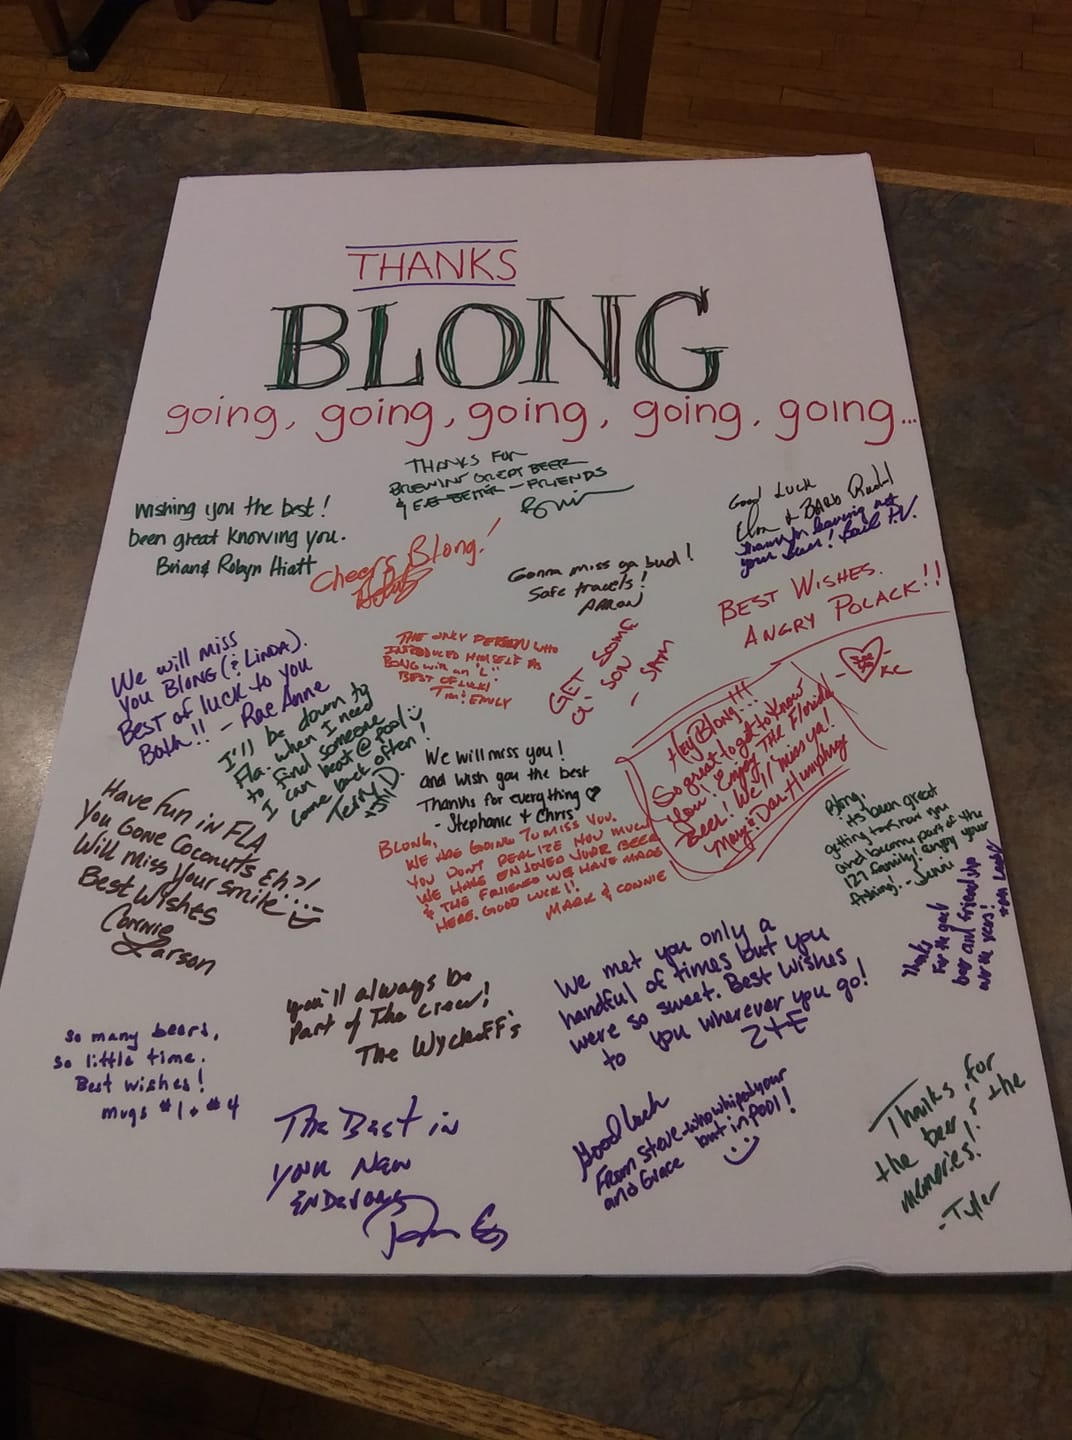 THANKS
BLONG
going, going, going, going, going...
THANKS FOR
BREWIN' GREAT BEER
& BETTER - FRIENDS
Wishing you the best!
been great knowing you.
Brian & Robyn Hiatt
Cheers Blong!
Gonna miss ya bud!
Safe travels!
AARON
Good Luck
& BARB
Thanks for leaving us
your beer!
BEST WISHES.
ANGRY POLACK!!
KC
We will miss
you BLONG (& LINDA).
BEST of luck to you
Both!! - Rae Anne
THE ONLY PERSON WHO
INTRODUCED HIMSELF AS
BONG with an "L".
BEST OF LUCK!
Tim & EMILY
GET SOME
SON
- SAM
I'll be down to
Fla. when I need
to find someone
I can beat @ pool
come back often!
Terry D.
We will miss you!
and wish you the best
Thanks for everything ♡
- Stephanie + Chris
Hey Blong!!!
So great to get to know
you! Enjoy The Florida
Beer! We'll miss ya!
Mary & Dan Humphrey
Have Fun in FLA
You Gone Coconuts Eh?!
Will miss your smile....
Best Wishes
Connie
Larson
BLONG,
WE ARE GOING TO MISS YOU.
YOU DON'T REALIZE HOW MUCH
WE HAVE ENJOYED YOUR BEER
& THE FRIENDS WE HAVE MADE
HERE. GOOD LUCK!!
MARK & CONNIE
Blong,
it's been great
getting to know you
and become part of the
127 family! enjoy your
fishing! - Jenni
Thanks
For the great
beer and friendship
over the years!
You'll always be
Part of The Crew!
The Wyckoff's
We met you only a
handful of times but you
were so sweet. Best Wishes
to you wherever you go!
Z+E
So many beers,
so little time.
Best wishes!
mugs #1 + #4
The Best in
your New
Endevors
Good Luck
From Steve who whiped your
and Grace butt in pool!
Thanks for
the beer & the
memories!
- Tyler